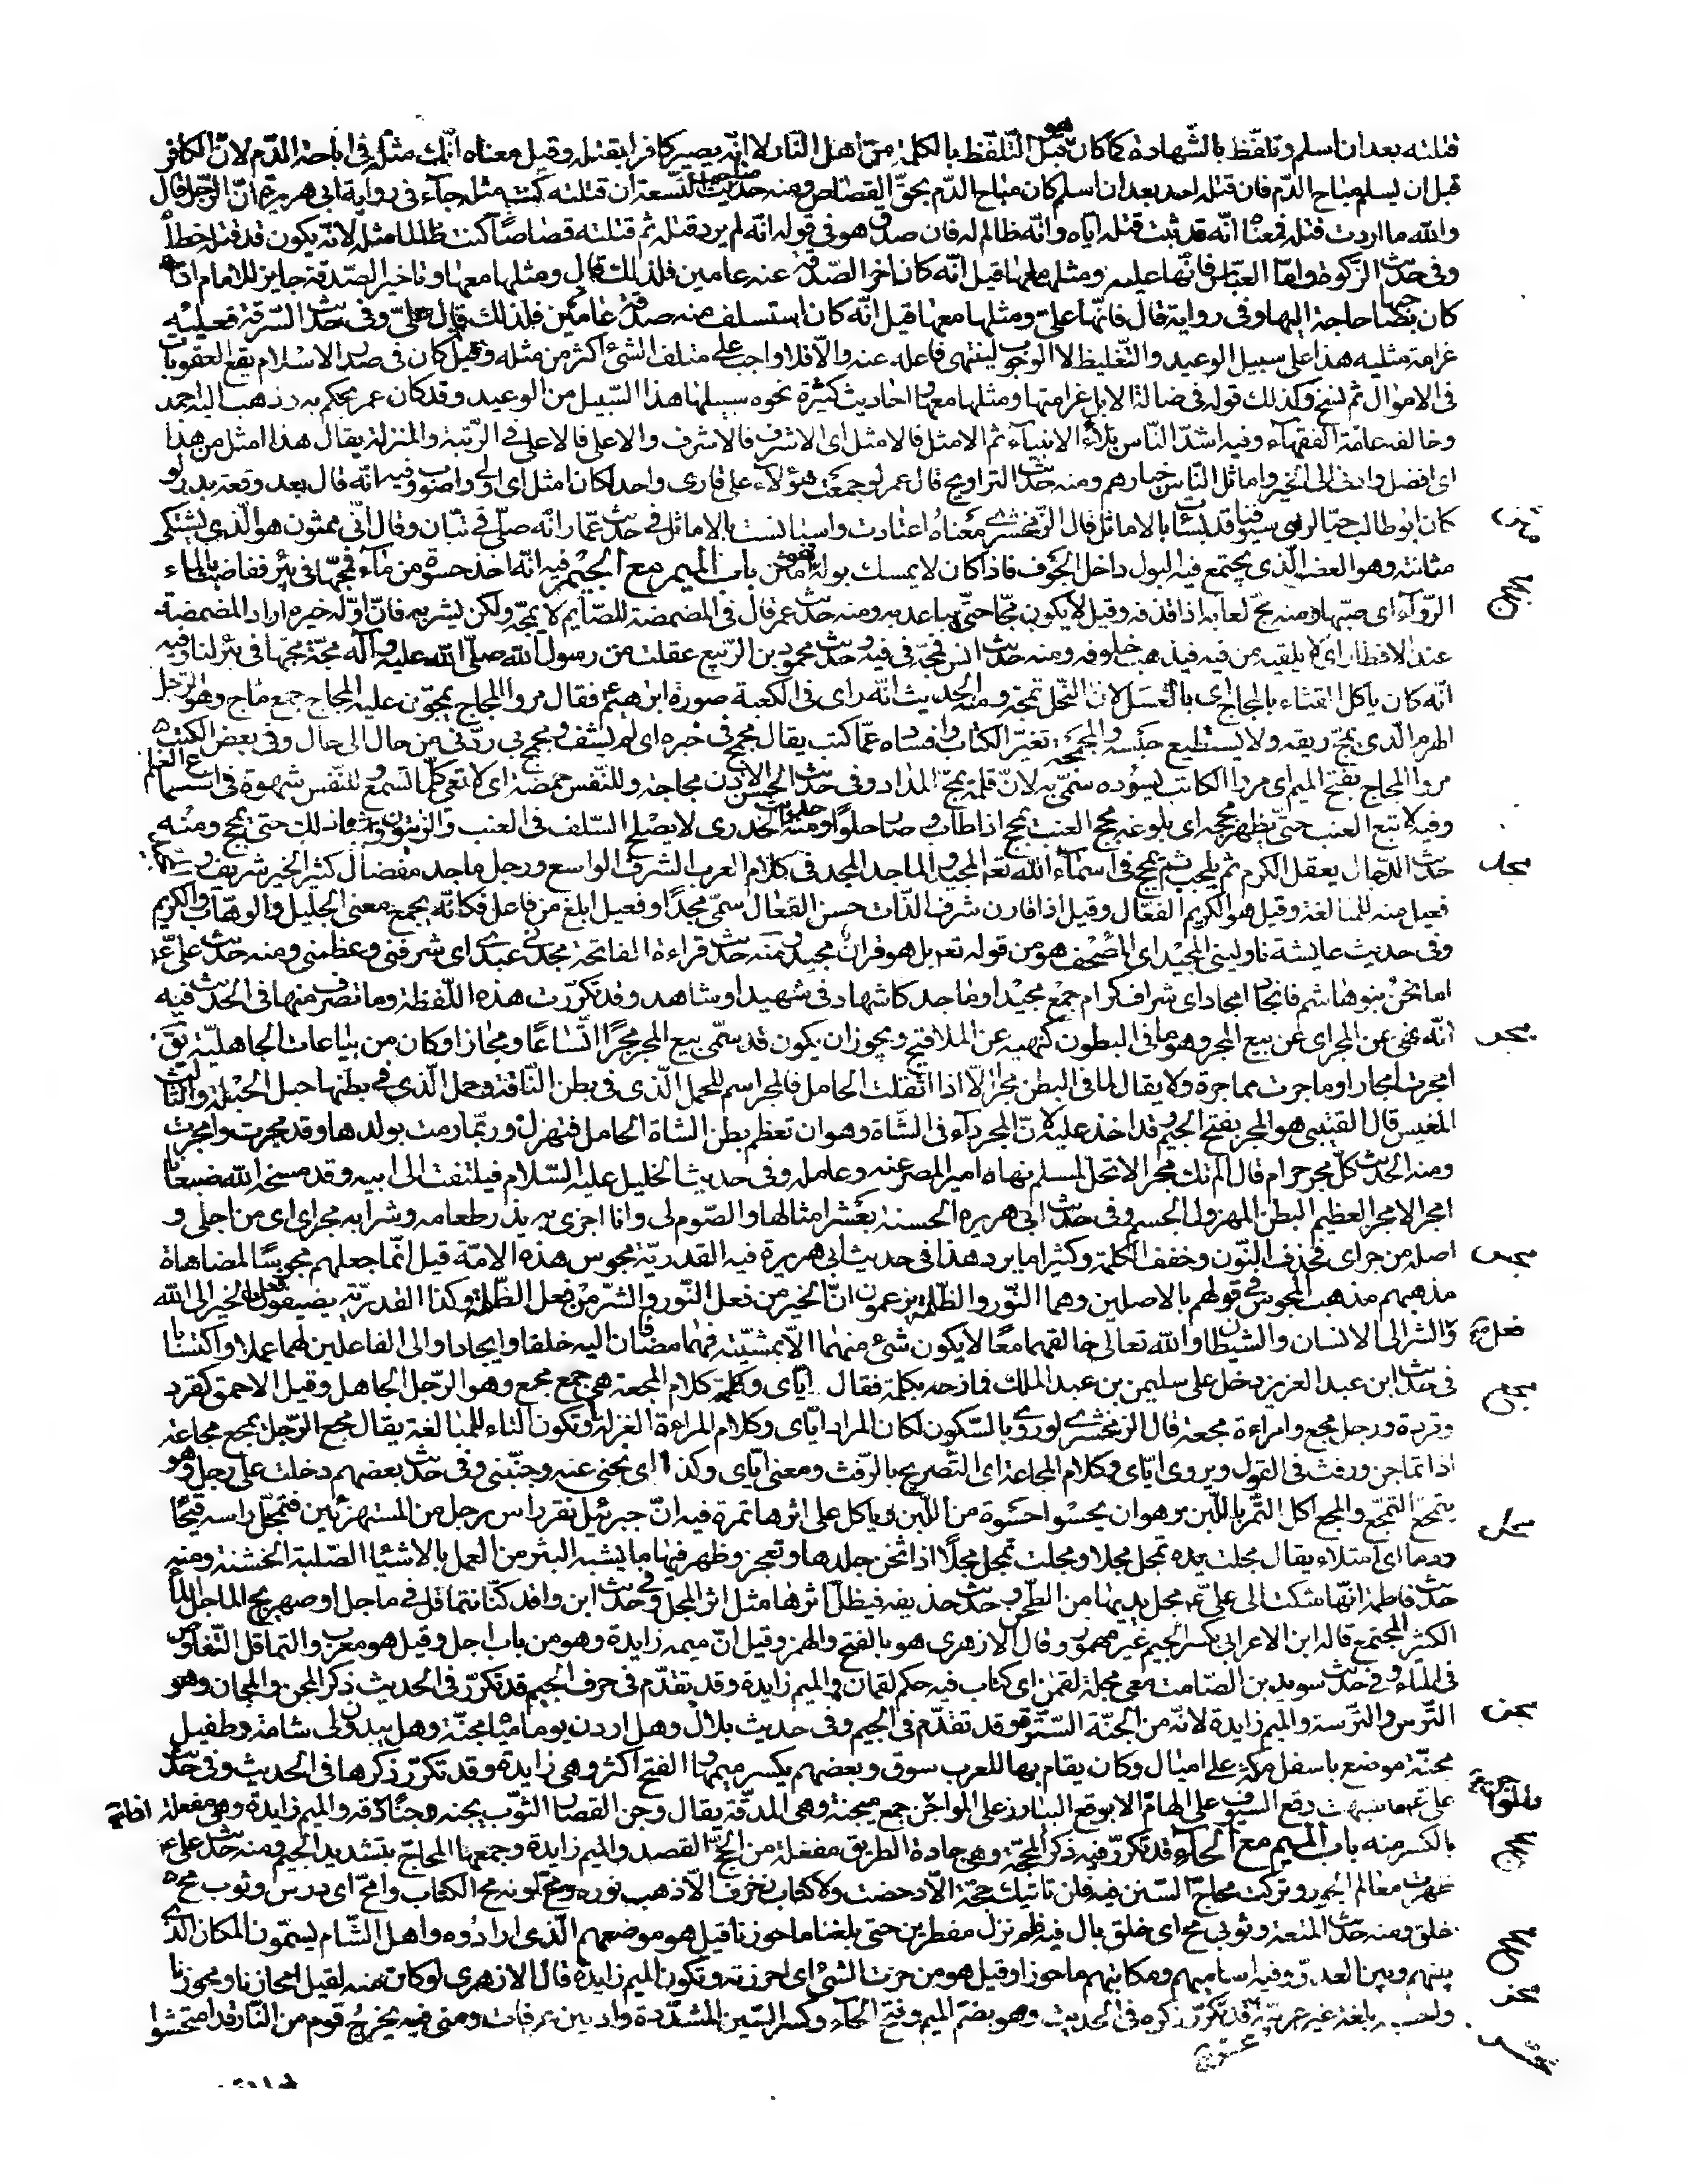 قتلته بعد ان اسلم وتلفظ بالشهادة كما كان هو قبل التلفظ بالكلمة من اهل النار لا انه يصير كافرا بقتله وقيل معناه انك مثله في اباحة الدم لان الكافر
قبل ان يسلم مباح الدم فان قتله احد بعد ان اسلم كان مباح الدم بحق القصاص ومنه حديث صاحب النسعة ان قتلته كنت مثله جاء في رواية ابي هريرة ان الرجل قال
والله ما اردت قتله فمعناه انه قد ثبت قتله اياه وانه ظالم له فان صدق هو في قوله انه لم يرد قتله ثم قتلته قصاصا كنت ظالما مثله لانه يكون قد قتله خطأ
وفي حديث الزكوة واما العباس فانها عليه ومثلها معها قيل انه كان اخر الصدقة عنه عامين فلذلك قال ومثلها معها وتاخير الصدقة جايز للامام اذا
كان بصاحبها حاجة اليها وفي رواية قال فانها علي ومثلها معها قيل انه كان استسلف منه صدقة عامين فلذلك قال علي وفي حديث السرقة فعليه
غرامة مثليه هذا على سبيل الوعيد والتغليظ لا الوجوب لينتهي فاعله عنه والا فلا واجب على متلف الشئ اكثر من مثله وقيل كان في صدر الاسلام يقع العقوبات
في الاموال ثم نسخ وكذلك قوله في ضالة الابل غرامتها ومثلها معها احاديث كثيرة نحوه سبيلها هذا السبيل من الوعيد وقد كان عمر يحكم به وذهب اليه احمد
وخالفه عامة الفقهاء وفيه اشد الناس بلاء الانبياء ثم الامثل فالامثل اى الاشرف فالاشرف والاعلى فالاعلى في الرتبة والمنزلة يقال هذا امثل من هذا
اى افضل وادنى الى الخير واماثل الناس خيارهم ومنه حديث التراويح قال عمر لو جمعت هؤلاء على قارى واحد لكان امثل اى اولى واصوب وفيه انه قال بعد وقعة بدر لو
كان ابو طالب حيا لراى سيوفنا قد بسأت بالاماثل قال الزمخشرى معناه اعتادت واستانست بالاماثل في حديث عمار انه صلى في تبان وقال انى ممثون هو الذى يشتكى
مثانته وهو العضو الذى يجتمع فيه البول داخل الجوف فاذا كان لا يمسك بوله فهو امثن باب الميم مع الجيم فيه انه اخذ حسوة من ماء فمجها في بئر ففاضت بالماء
الرواء اى صبها ومنه مج لعابه اذا قذفه وقيل لا يكون مجا حتى يباعد به ومنه حديث عمر قال في المضمضة للصايم لا يمجه ولكن يشربه فان اوله خيره اراد المضمضة
عند الافطار اى لا يلقيه من فيه فيذهب خلوفه ومنه حديث انس فمجه في فيه وحديث محمود بن الربيع عقلت من رسول الله صلى الله عليه وآله مجة مجها في بئر لنا وفيه
انه كان ياكل القثاء بالمجاج اى بالعسل لان النحل تمجه ومنه الحديث انه راى في الكعبة صورة ابرهيم فقال مروا المجاج يمجون عليه المجاج جمع ماج وهو الرجل
الهرم الذى يمج ريقه ولا يستطيع حبسه والمجمجة تغير الكتاب وافساده عما كتب يقال مجمج في خبره اى لم يشف ومجمج بي ردنى من حال الى حال وفي بعض الكتب
مروا المجاج بفتح الميم اى مروا الكاتب يسوده سمى به لان قلمه يمج المداد وفي حديث الحسن الاذن مجاجة وللنفس حمضة اى لا تعى كلما تسمع وللنفس شهوة في استماع العلم
وفيه لا تبع العنب حتى يظهر مججه اى بلوغه مجج العنب يمجج اذا طاب وصار حلوا ومنه حديث الخدرى لا يصلح السلف في العنب والزيتون واشباه ذلك حتى يمجج ومنه
حديث الدجال يعقل الكرم ثم يكحب ثم يمجج في اسماء الله تعالى المجيد والماجد المجد في كلام العرب الشرف الواسع ورجل ماجد مفضال كثير الخير شريف
فعيل منه للمبالغة وقيل هو الكريم الفعال وقيل اذا قارن شرف الذات حسن الفعال سمى مجدا وفعيل ابلغ من فاعل فكانه يجمع معنى الجليل والوهاب والكريم
وفي حديث عايشة ناولينى المجيد اى المصحف هو من قوله تعه بل هو قران مجيد ومنه حديث قراءة الفاتحة مجدنى عبدى اى شرفنى وعظمنى ومنه حديث على
اما نحن بنو هاشم فانجاد امجاد اى شراف كرام جمع مجيد او ماجد كاشهاد في شهيد او شاهد وقد تكررت هذه اللفظة وما تصرف منها في الحديث فيه
انه نهى عن المجر اى عن بيع المجر وهو ما في البطون كنهيه عن الملاقيح ويجوز ان يكون قد سمى بيع المجر مجرا اتساعا ومجازا وكان من بياعات الجاهلية يق
امجرت امجارا وماجرت مماجرة ولا يقال لما في البطن مجر الا اذا اثقلت الحامل فالمجر اسم للحمل الذى في بطن الناقة وحمل الذى في بطنها حبل الحبلة والثالث
الغميس قال القتيبى هو المجر بفتح الجيم وقد اخذ عليه لان المجر داء في الشاة وهو ان تعظم بطن الشاة الحامل فتهزل وربما رمت بولدها وقد مجرت وامجرت
ومنه الحديث كل مجر حرام قال الم تك مجرا لا تحل لمسلم نهاه امير المصر عنه وعامله وفي حديث الخليل عليه السلام فيلتفت الى ابيه وقد مسخه الله ضبعانا
امجر الامجر العظيم البطن المهزول الجسم وفي حديث ابى هريرة الحسنة بعشر امثالها والصوم لى وانا اجزى به يذر طعامه وشرابه مجراى اى من اجلى و
اصله من جراى فحذف النون وخفف الكلمة وكثيرا ما يرد هذا في حديث ابى هريرة فيه القدرية مجوس هذه الامة قيل انما جعلهم مجوسا لمضاهاة
مذهبهم مذهب المجوس في قولهم بالاصلين وهما النور والظلمة يزعمون ان الخير من فعل النور والشر من فعل الظلمة وكذا القدرية يضيفون الخير الى الله
والشر الى الانسان والشيطان والله تعالى خالقهما معا لا يكون شئ منهما الا بمشيته فهما مضافان اليه خلقا وايجادا والى الفاعلين لهما عملا واكتسابا
في حديث ابن عبد العزيز دخل على سليمن بن عبد الملك فمازحه بكلمة فقال اياى وكلام المجعة هى جمع مجع وهو الرجل الجاهل وقيل الاحمق كقرد
وقردة ورجل مجع وامراءة مجعة قال الزمخشرى لو روى بالسكون لكان المراد اياى وكلام المراءة الغزلة وتكون التاء للمبالغة يقال مجع الرجل يمجع مجاعة
اذا تماجن ورفث في القول ويروى اياى وكلام المجاعة اى التصريح بالرفث ومعنى اياى وكذا اى نحنى عنه وجنبنى وفي حديث بعضهم دخلت على رجل وهو
يتمجع التمجع والمجع اكل التمر باللبن وهو ان يحسو حسوة من اللبن وياكل على اثرها تمرة فيه ان جبرئيل نقر راس رجل من المستهزئين فتمجل راسه قيحا
ودما اى امتلاء يقال مجلت يده تمجل مجلا ومجلت تمجل مجلا اذا ثخن جلدها وتعجز وظهر فيها ما يشبه البثر من العمل بالاشيا الصلبة الخشنة ومنه
حديث فاطمة انها شكت الى على مجل يديها من الطحن وحديث حذيفه فيظل اثرها مثل اثر المجل وفي حديث ابن واقد كنا نتماقل في ماجل او صهريج الماجل الماء
الكثير المجتمع قاله ابن الاعرابى بكسر الجيم غير مهموز وقال الازهرى هو بالفتح والهمز وقيل ان ميمه زايدة وهو من باب اجل وقيل هو معرب والتماقل التغاوص
في الماء وفي حديث سويد بن الصامت معى مجلة لقمن اى كتاب فيه حكم لقمان والميم زايدة وقد تقدم في حرف الجيم قد تكرر في الحديث ذكر المجن والمجان وهو
الترس والترسة والميم زايدة لانه من الجنة السترة وقد تقدم في الجيم وفي حديث بلال وهل اردن يوما مياه مجنة وهل يبدون لى شامة وطفيل
مجنة موضع باسفل مكة على اميال وكان يقام بها للعرب سوق وبعضهم يكسر ميمها الفتح اكثر وهى زايدة وقد تكرر ذكرها في الحديث وفي حديث
على ما شبهت وقع السيوف على الهام الا بوقع البيازر على المواجن جمع ميجنة وهى المدقة يقال وجن القصار الثوب يجنه وجنا دقه والميم زايدة وهى مفعلة
بالكسر منه باب الميم مع الحاء قد تكرر فيه ذكر المحجة وهى جادة الطريق مفعلة من الحج القصد والميم زايدة وجمعها المحاج بتشديد الجيم ومنه حديث على
ظهرت معالم الجور وتركت محاج السنن فيه فلن تاتيك حجة الا دحضت ولا كتاب زخرف الا ذهب نوره ومح لونه مح الكتاب وامح اى درس وثوب مح
خلق ومنه حديث المتعة وثوبى مح اى خلق بال فيه فلم نزل مفطرين حتى بلغنا ماحوزنا قيل هو موضعهم الذى ارادوه واهل الشام يسمون المكان الذى
بينهم وبين العدو وفيه اساميهم ومكاتبهم ماحوزا وقيل هو من حزت الشئ اى احرزته وتكون الميم زايدة قال الازهرى لو كان منه لقيل محازنا ومحوزنا
بلغة غير عربية قد تكرر ذكره في الحديث وهو بضم الميم وفتح الحاء وكسر السين المشددة واد بين عرفات ومنى فيه يخرج قوم من النار قد امتحشوا